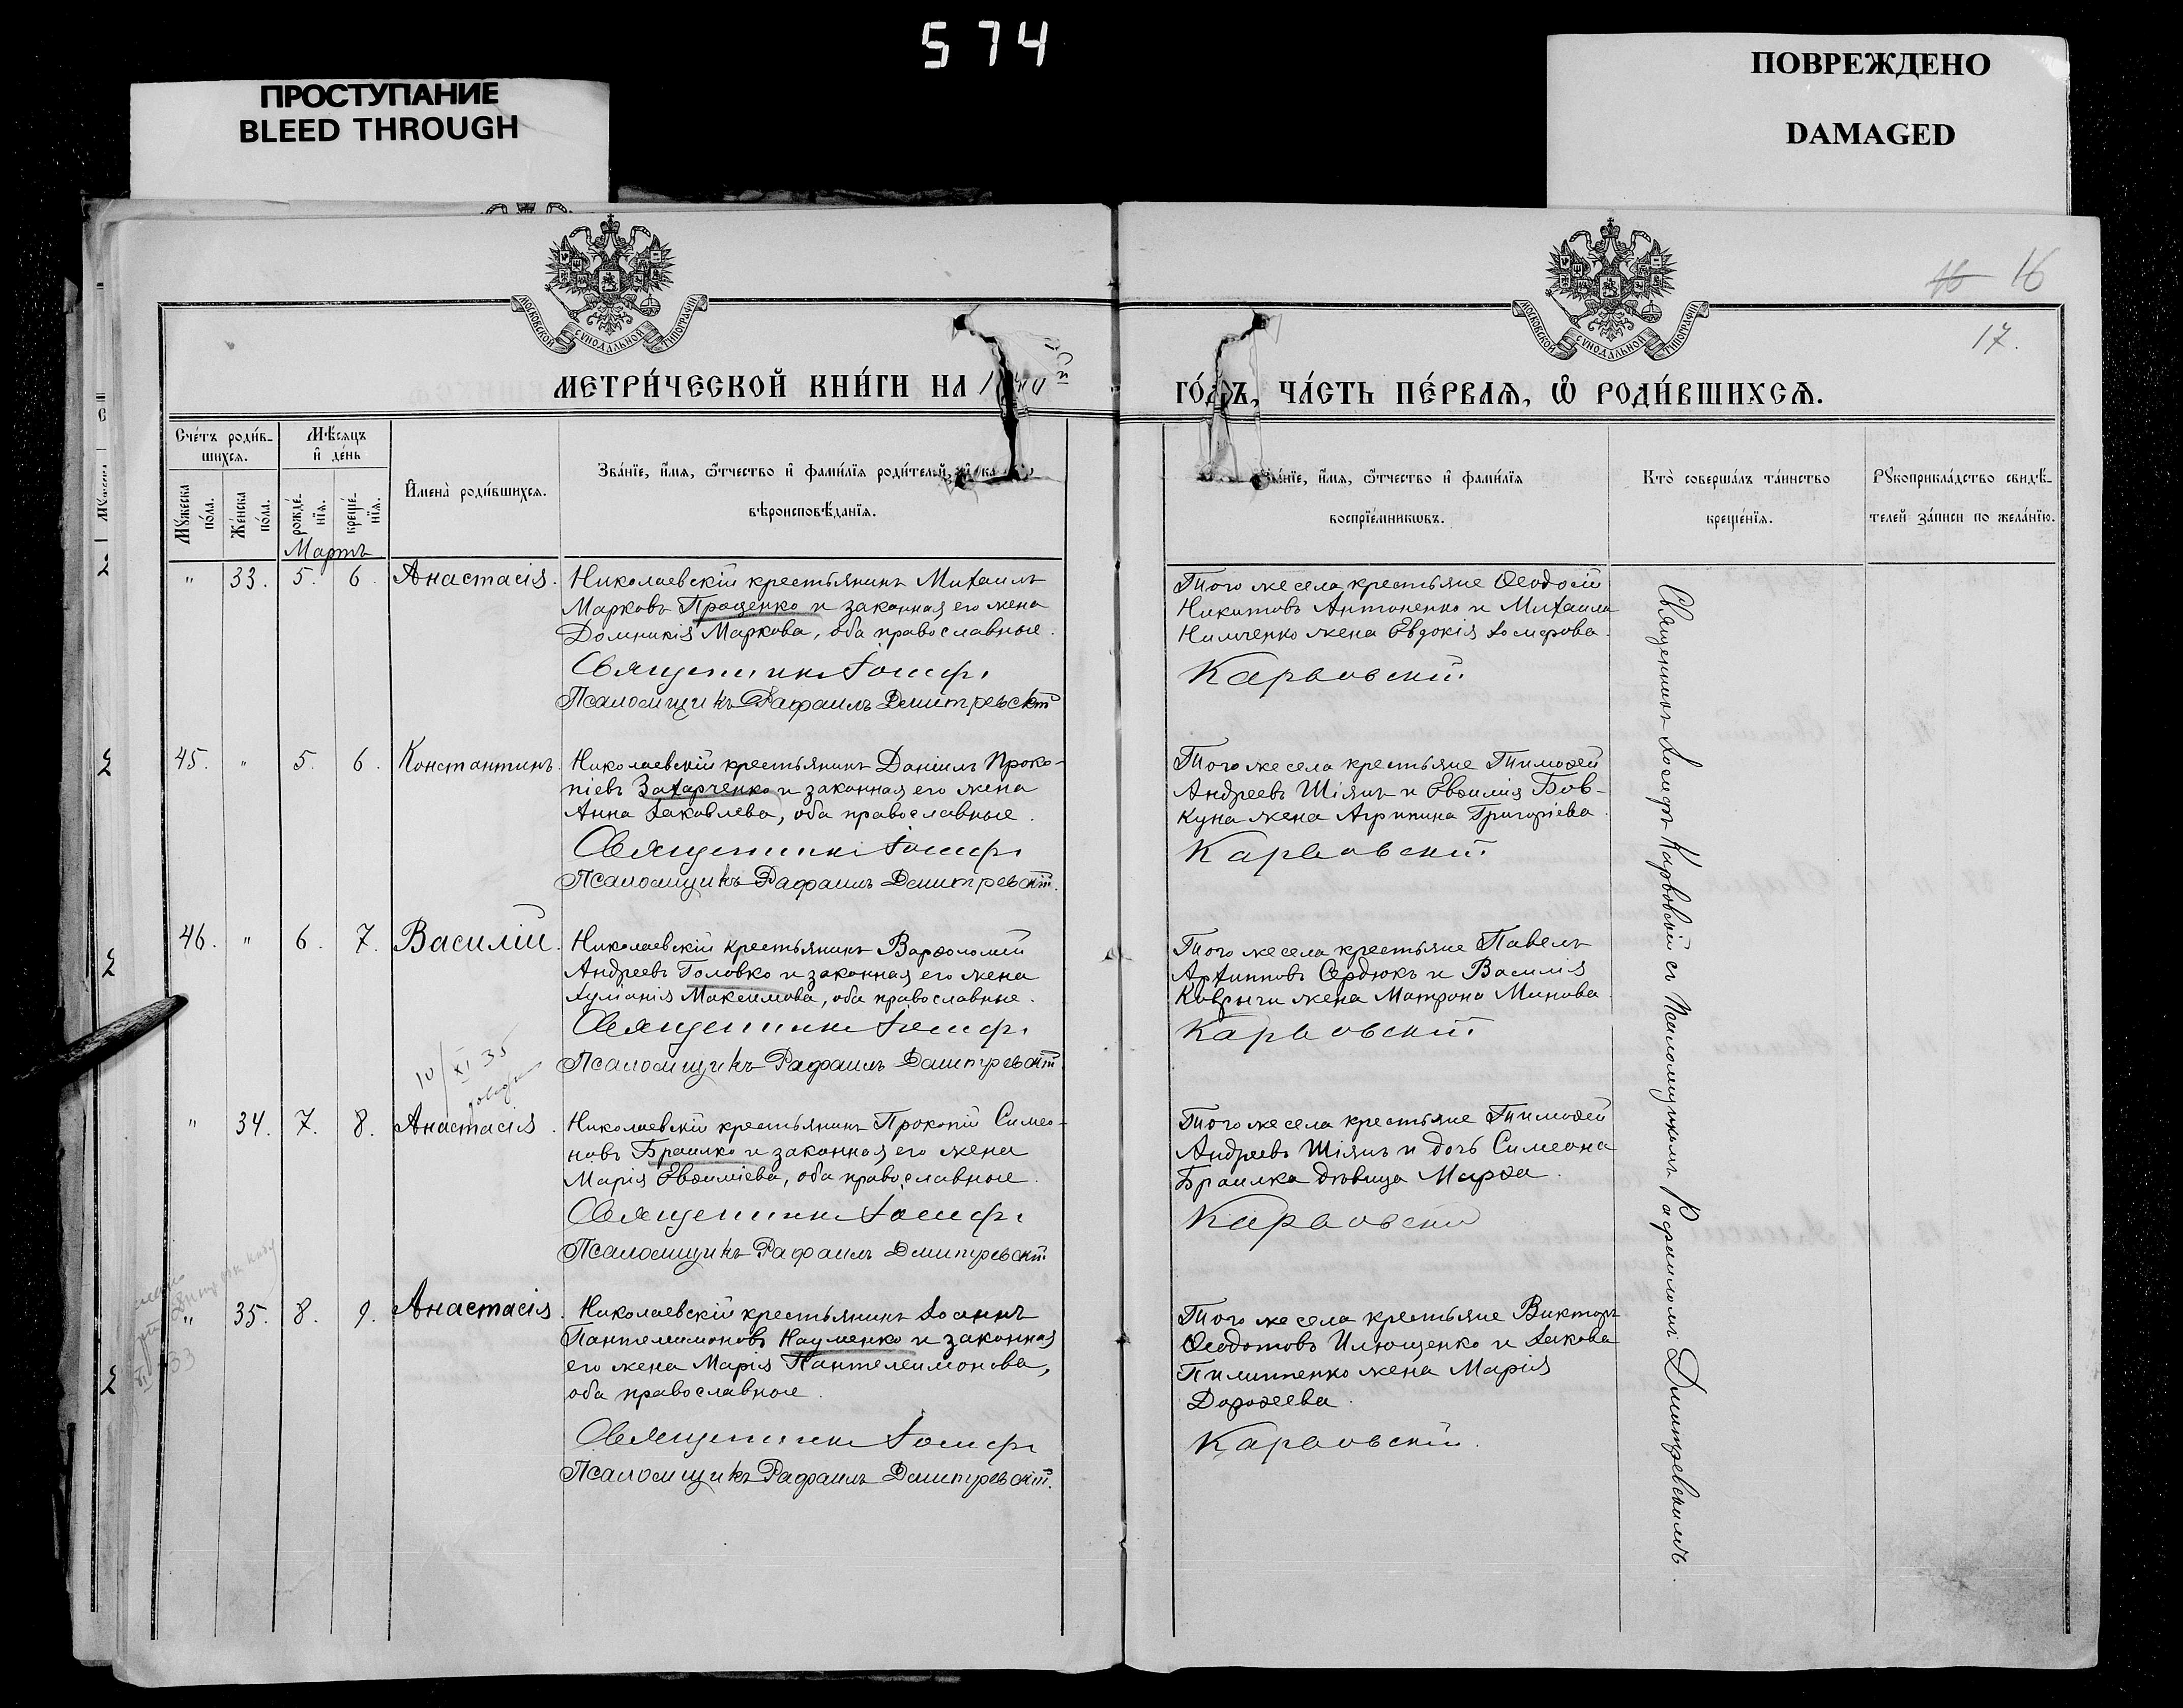 574
ПРОСТУПАНИЕ
BLEED THROUGH
ПОВРЕЖДЕНО
DAMAGED
МОСКОВСКОЙ СѴНОДАЛЬНОЙ ТИПОГРАФІИ
МОСКОВСКОЙ СѴНОДАЛЬНОЙ ТИПОГРАФІИ
16 16
17.
МЕТРИ́ЧЕСКОЙ КНИ́ГИ НА
ГО́ДЪ, ЧА́СТЬ ПЕ́РВАЯ, Ѡ҆ РОДИ́ВШИХСѦ.
Сче́тъ роди́в-
шихся.
Мѣ́сяцъ
и҆ де́нь
Мꙋ́жеска
по́ла.
Же́нска
по́ла.
рожде́-
нїя.
креще́-
нїя.
И҆мена̀ роди́вшихся.
Зва́нїе, и҆́мя, ѻ҆́тчество и҆ фами́лїя роди́телей, и҆ како́гѡ
вѣроисповѣ́данїя.
Зва́нїе, и҆́мя, ѻ҆́тчество и҆ фами́лїя
воспрїе́мникѡвъ.
Кто̀ соверша́лъ та́инство
креще́нїя.
Рꙋкоприкла́дство свидѣ́-
телей за́писи по жела́нїю.
Мартъ
" 33. 5. 6. Анастасія.
Николаевскій крестьянинъ Михаилъ
Марковъ Проценко и законная его жена
Домникія Маркова, оба православные.
Священникъ Іосифъ
Псаломщикъ Рафаилъ Дмитревскій
Того же села крестьяне Ѳеодосій
Никитовъ Антоненко и Михаила
Нимченко жена Евдокія Іосифова.
Карвовскій
45. " 5. 6. Константинъ.
Николаевскій крестьянинъ Даніилъ Проко-
піевъ Захарченко и законная его жена
Анна Іаковлева, оба православные.
Священникъ Іосифъ
Псаломщикъ Рафаилъ Дмитревскій.
Того же села крестьяне Тимоѳей
Андреевъ Шіянъ и Евѳимія Бов-
куна жена Агрипина Григоріева.
Карвовскій
46. " 6. 7. Василій.
Николаевскій крестьянинъ Варѳоломей
Андреевъ Головко и законная его жена
Іуліанія Максимова, оба православные.
Священникъ Іосифъ
Псаломщикъ Рафаилъ Дмитревскій.
Того же села крестьяне Павелъ
Архипповъ Сердюкъ и Василія
Коврыги жена Матрона Минова.
Карвовскій
10/XI 35
" 34. 7. 8. Анастасія.
Николаевскій крестьянинъ Прокопій Симео-
новъ Браилко и законная его жена
Марія Евѳиміева, оба православные.
Священникъ Іосифъ
Псаломщикъ Рафаилъ Дмитревскій
Того же села крестьяне Тимоѳей
Андреевъ Шіянъ и дочь Симеона
Браилка дѣвица Марѳа.
Карвовскій
" 35. 8. 9. Анастасія.
Николаевскій крестьянинъ Іоаннъ
Пантелимоновъ Науменко и законная
его жена Марія Пантелеимонова,
оба православные.
Священникъ Іосифъ
Псаломщикъ Рафаилъ Дмитревскій.
Того же села крестьяне Викторъ
Ѳеодотовъ Илющенко и Іакова
Пилипенко жена Марія
Дороѳеева.
Карвовскій.
Священникъ Іосифъ Карвовскій съ Псаломщикомъ Рафаиломъ Дмитревскимъ.